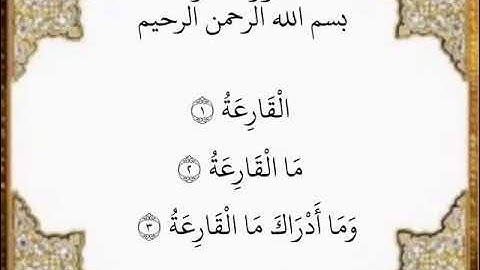 بسم الله الرحمن الرحيم
الْقَارِعَةُ ١
مَا الْقَارِعَةُ ٢
وَمَا أَدْرَاكَ مَا الْقَارِعَةُ ٣